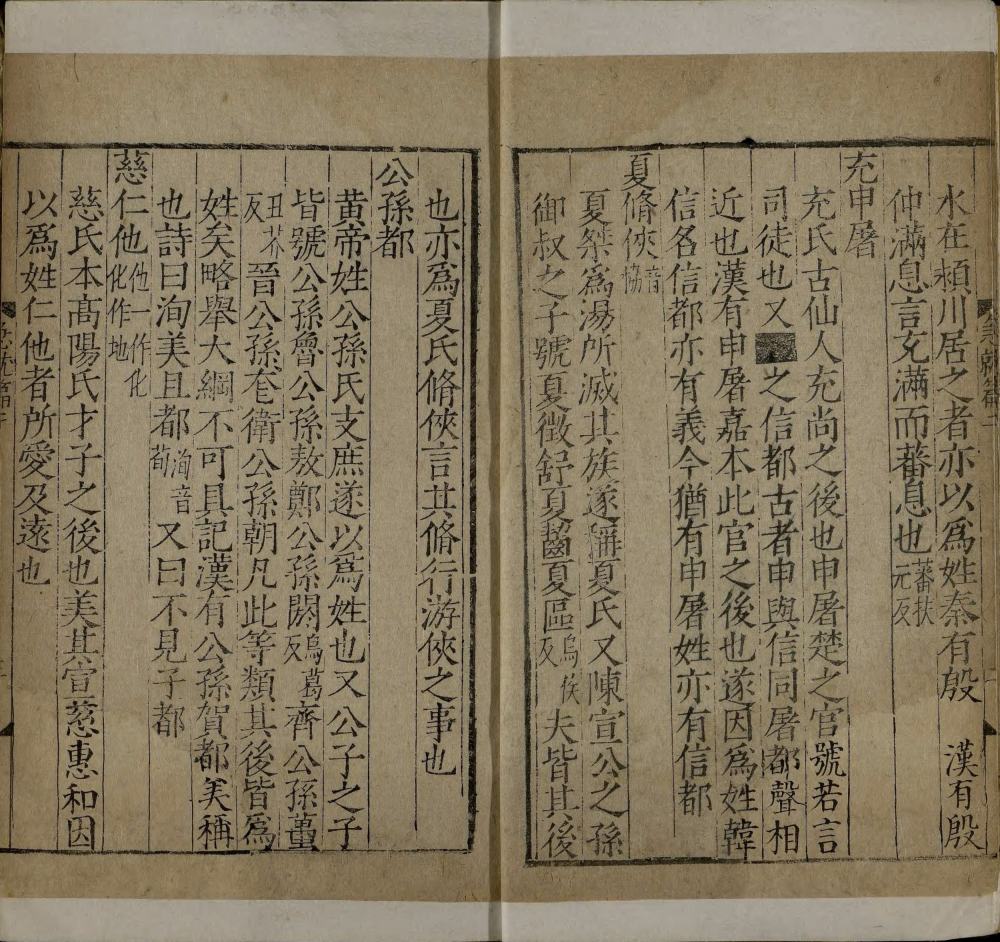 水在潁川居之者亦以爲姓秦有殷　漢有殷
仲滿息言充滿而蕃息也蕃扶元反
充申屠
充氏古仙人充尚之後也申屠楚之官號若言
司徒也又之信都古者申與信同屠都聲相
近也漢有申屠嘉本此官之後也遂因爲姓韓
信名信都亦有義今猶有申屠姓亦有信都
夏脩俠音協
夏桀爲湯所滅其族遂稱夏氏又陳宣公之孫
御叔之子號夏徵舒夏齧夏區烏侯反夫皆其後
急就篇
也亦爲夏氏脩俠言其脩行游俠之事也
公孫都
黃帝姓公孫氏支庶遂以爲姓也又公子之子
皆號公孫魯公孫敖鄭公孫閼烏葛反齊公孫蠆
丑芥反晉公孫尨衛公孫朝凡此等類其後皆爲
姓矣略舉大綱不可具記漢有公孫賀都美稱
也詩曰洵美且都洵音荀又曰不見子都
慈仁他他一作化化作地
慈氏本高陽氏才子之後也美其宣慈惠和因
以爲姓仁他者所愛及遠也